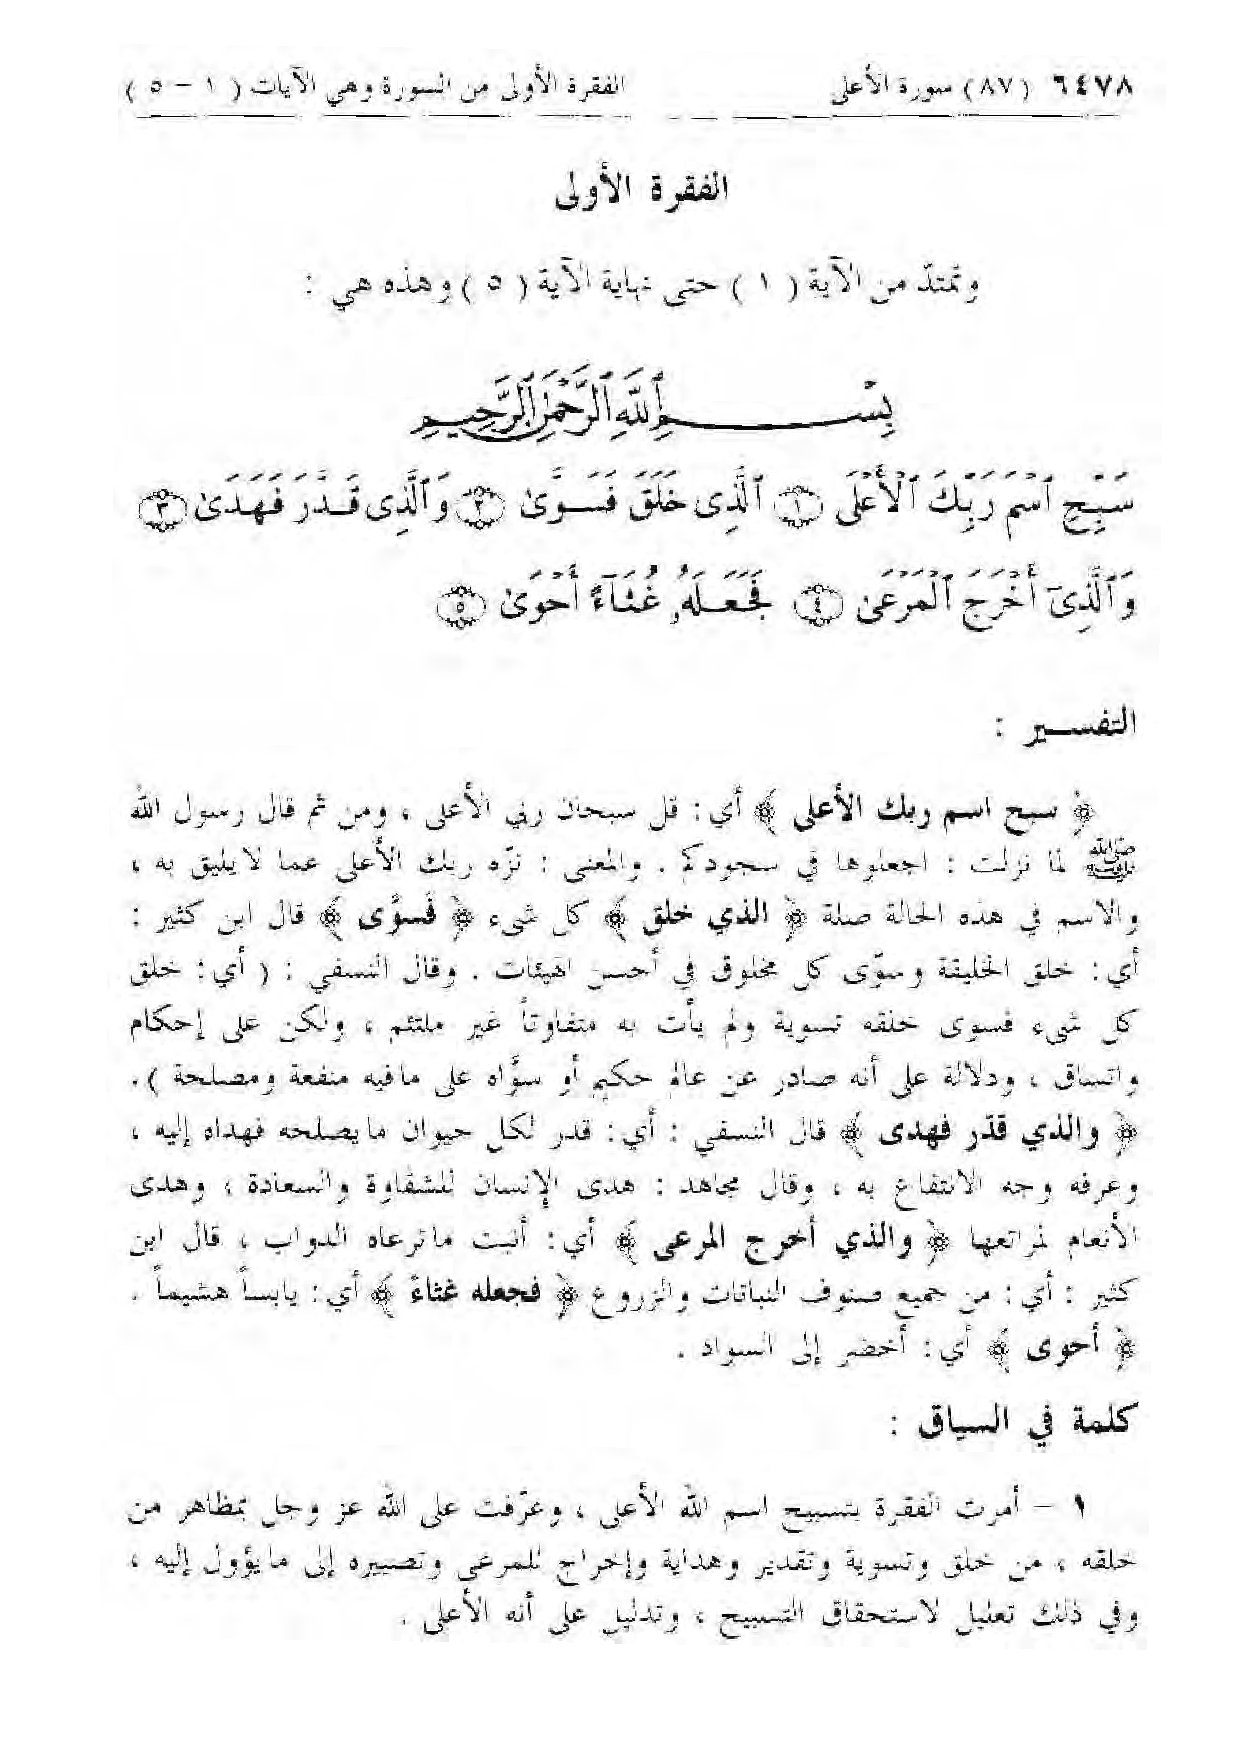 ٦٤٧٨ ( ٨٧ ) سورة الأعلى الفقرة الأولى من السورة وهي الآيات ( ١ - ٥ )
الفقرة الأولى
وتمتدّ من الآية ( ١ ) حتى نهاية الآية ( ٥ ) وهذه هي :
بِسْمِ ٱللَّهِ ٱلرَّحْمَٰنِ ٱلرَّحِيمِ
سَبِّحِ ٱسْمَ رَبِّكَ ٱلْأَعْلَى ١ ٱلَّذِى خَلَقَ فَسَوَّىٰ ٢ وَٱلَّذِى قَدَّرَ فَهَدَىٰ ٣
وَٱلَّذِىٓ أَخْرَجَ ٱلْمَرْعَىٰ ٤ فَجَعَلَهُۥ غُثَآءً أَحْوَىٰ ٥
التفسير :
﴿ سبح اسم ربك الأعلى ﴾ أي : قل سبحان ربي الأعلى ، ومن ثم قال رسول الله
ﷺ لما نزلت : اجعلوها في سجودكم . والمعنى : نزّه ربك الأعلى عما لا يليق به ،
والاسم في هذه الحالة صلة ﴿ الذي خلق ﴾ كل شيء ﴿ فَسوَّى ﴾ قال ابن كثير :
أي : خلق الخليقة وسوّى كل مخلوق في أحسن الهيئات . وقال النسفي : ( أي : خلق
كل شيء فسوى خلقه تسوية ولم يأت به متفاوتاً غير ملتئم ، ولكن على إحكام
واتساق ، ودلالة على أنه صادر عن عالم حكيم أو سوَّاه على ما فيه منفعة ومصلحة ) .
﴿ والذي قدّر فهدى ﴾ قال النسفي : أي : قدر لكل حيوان ما يصلحه فهداه إليه ،
وعرفه وجه الانتفاع به ، وقال مجاهد : هدى الإنسان للشقاوة والسعادة ، وهدى
الأنعام لمراتعها ﴿ والذي أخرج المرعى ﴾ أي : أنبت ما ترعاه الدواب ، قال ابن
كثير : أي : من جميع صنوف النباتات والزروع ﴿ فجعله غثاءً ﴾ أي : يابساً هشيماً .
﴿ أحوى ﴾ أي : أخضر إلى السواد .
كلمة في السياق :
١ - أمرت الفقرة بتسبيح اسم الله الأعلى ، وعرّفت على الله عز وجل بمظاهر من
خلقه ، من خلق وتسوية وتقدير وهداية وإخراج للمرعى وتصييره إلى ما يؤول إليه ،
وفي ذلك تعليل لاستحقاق التسبيح ، وتدليل على أنه الأعلى .